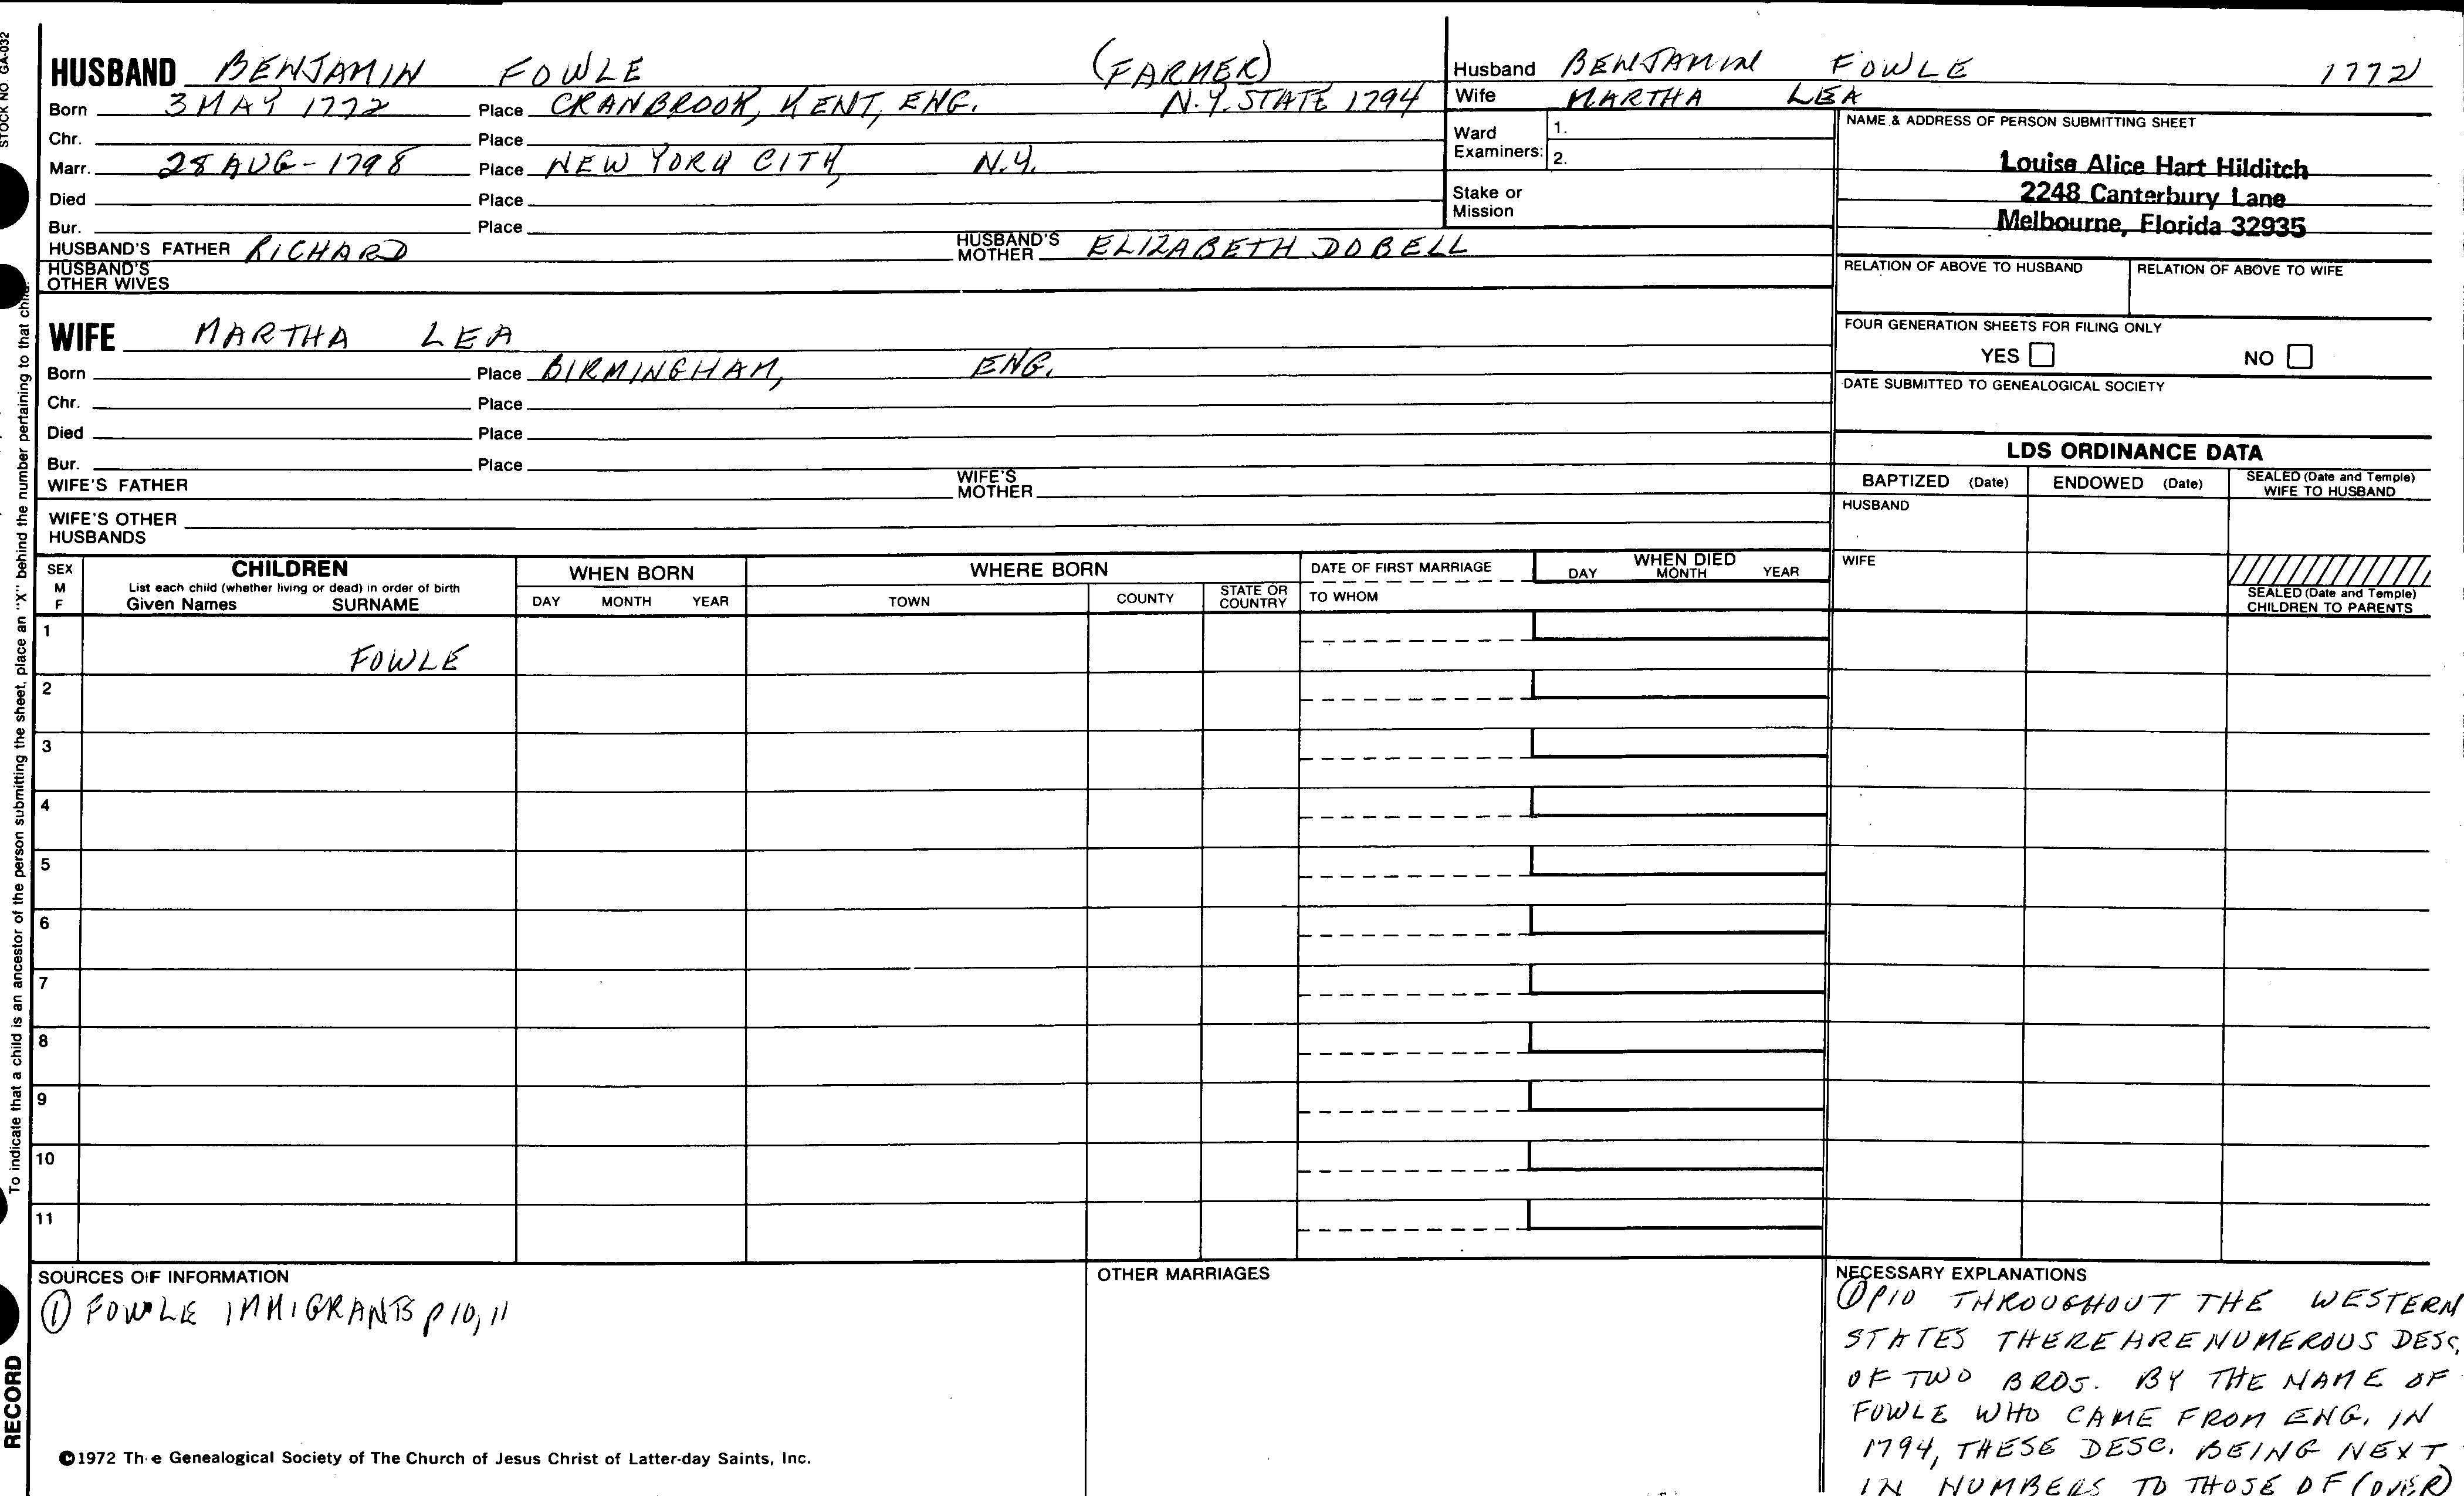 STOCK NO GA-032
HUSBAND BENJAMIN FOWLE (FARMER)
Born 3 MAY 1772 Place CRANBROOK, KENT, ENG. N.Y. STATE 1794
Chr. Place
Marr. 28 AUG - 1798 Place NEW YORK CITY, N.Y.
Died Place
Bur. Place
HUSBAND'S FATHER RICHARD HUSBAND'S MOTHER ELIZABETH DOBELL
HUSBAND'S OTHER WIVES
WIFE MARTHA LEA
Born Place BIRMINGHAM, ENG.
Chr. Place
Died Place
Bur. Place
WIFE'S FATHER WIFE'S MOTHER
WIFE'S OTHER HUSBANDS
Husband BENJAMIN FOWLE 1772
Wife MARTHA LEA
Ward Examiners: 1.
2.
Stake or Mission
NAME & ADDRESS OF PERSON SUBMITTING SHEET
Louise Alice Hart Hilditch
2248 Canterbury Lane
Melbourne, Florida 32935
RELATION OF ABOVE TO HUSBAND RELATION OF ABOVE TO WIFE
FOUR GENERATION SHEETS FOR FILING ONLY
YES NO
DATE SUBMITTED TO GENEALOGICAL SOCIETY
LDS ORDINANCE DATA
BAPTIZED (Date) ENDOWED (Date) SEALED (Date and Temple) WIFE TO HUSBAND
HUSBAND
WIFE
SEALED (Date and Temple) CHILDREN TO PARENTS
SEX M F CHILDREN WHEN BORN WHERE BORN DATE OF FIRST MARRIAGE WHEN DIED
List each child (whether living or dead) in order of birth
Given Names SURNAME DAY MONTH YEAR TOWN COUNTY STATE OR COUNTRY TO WHOM DAY MONTH YEAR
1
FOWLE
2
3
4
5
6
7
8
9
10
11
To indicate that a child is an ancestor of the person submitting the sheet, place an "X" behind the number pertaining to that child.
RECORD
SOURCES OF INFORMATION
① FOWLE IMMIGRANTS p 10, 11
©1972 The Genealogical Society of The Church of Jesus Christ of Latter-day Saints, Inc.
OTHER MARRIAGES
NECESSARY EXPLANATIONS
① P10 THROUGHOUT THE WESTERN
STATES THERE ARE NUMEROUS DESC.
OF TWO BROS. BY THE NAME OF
FOWLE WHO CAME FROM ENG. IN
1794, THESE DESC. BEING NEXT
IN NUMBERS TO THOSE OF (OVER)